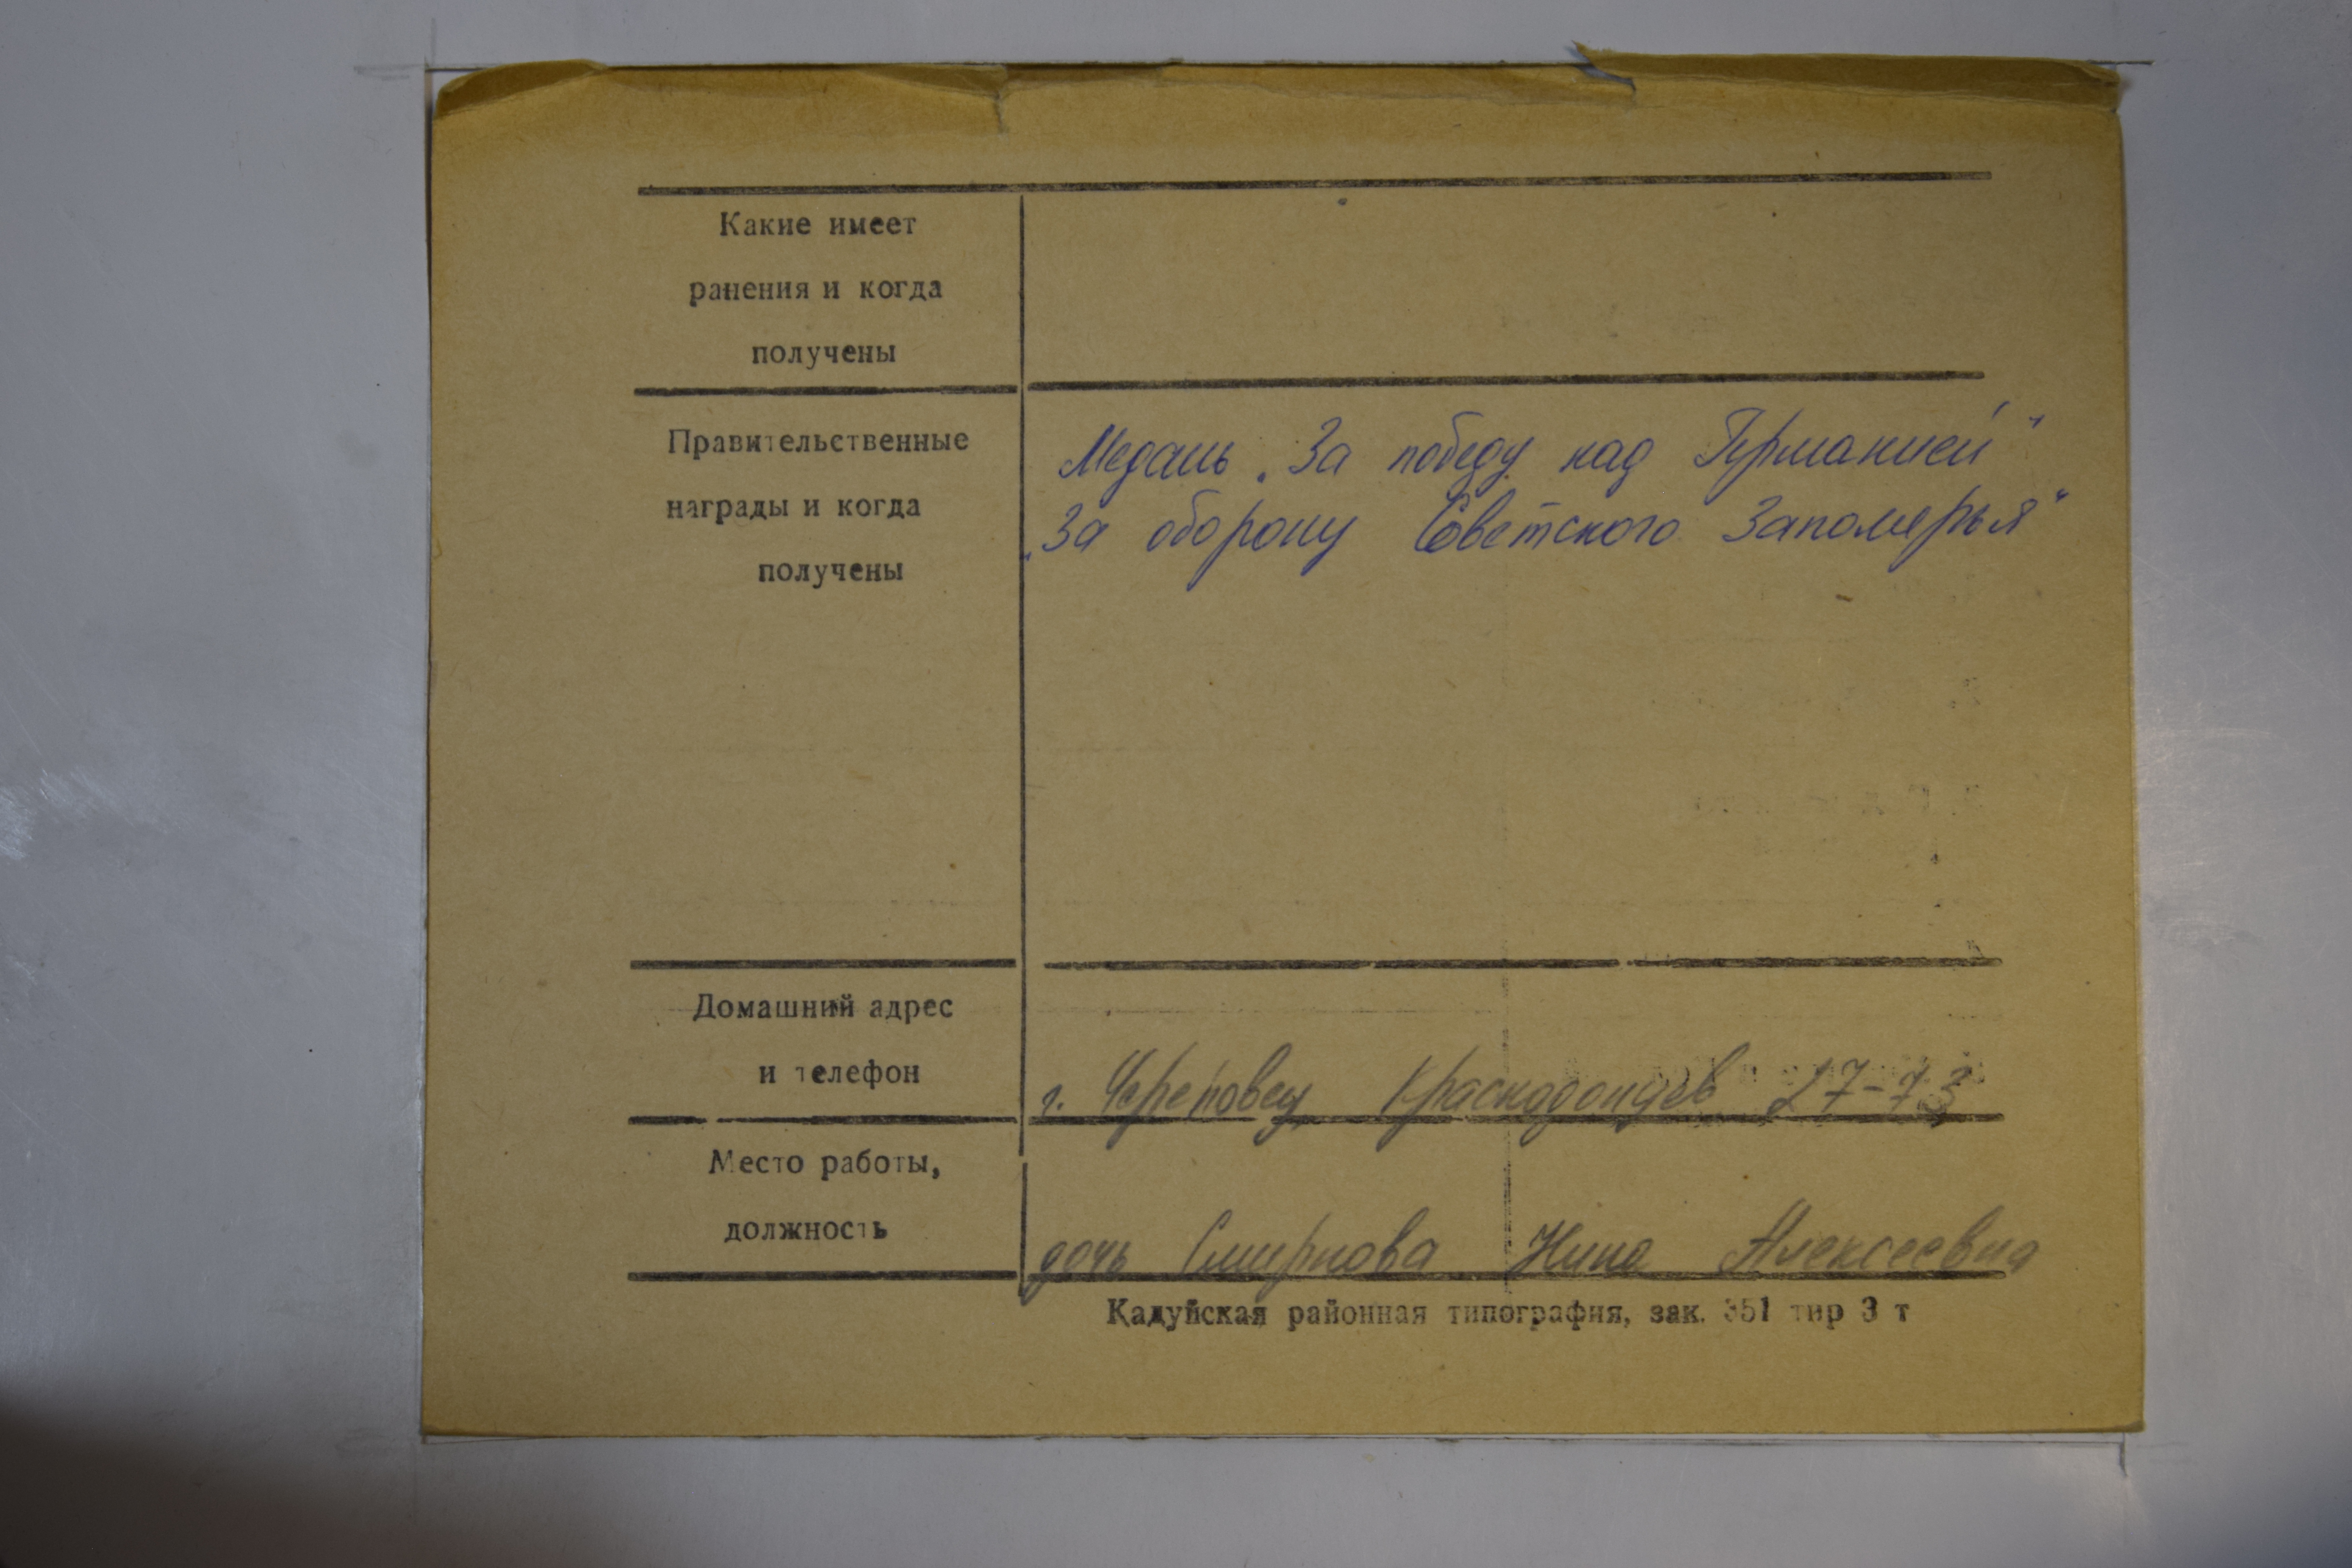 Какие имеет
ранения и когда
получены
Правительственные
награды и когда
получены
Медаль „За победу над Германией“
„За оборону Советского Заполярья“
Домашний адрес
и телефон
г. Череповец Краснодонцев 27-73
Место работы,
должность
дочь Смирнова Нина Алексеевна
Кадуйская районная типография, зак. 351 тир 3 т